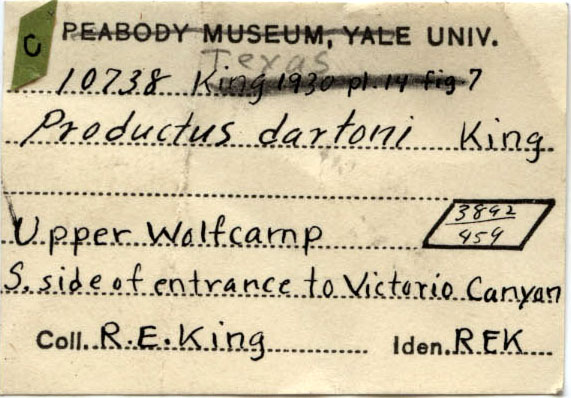 C PEABODY MUSEUM, YALE UNIV.
Texas
10738 King 1930 pl. 14 fig 7
Productus dartoni King
Upper Wolfcamp
3892
459
S. side of entrance to Victorio Canyon
Coll. R.E.King Iden. REK